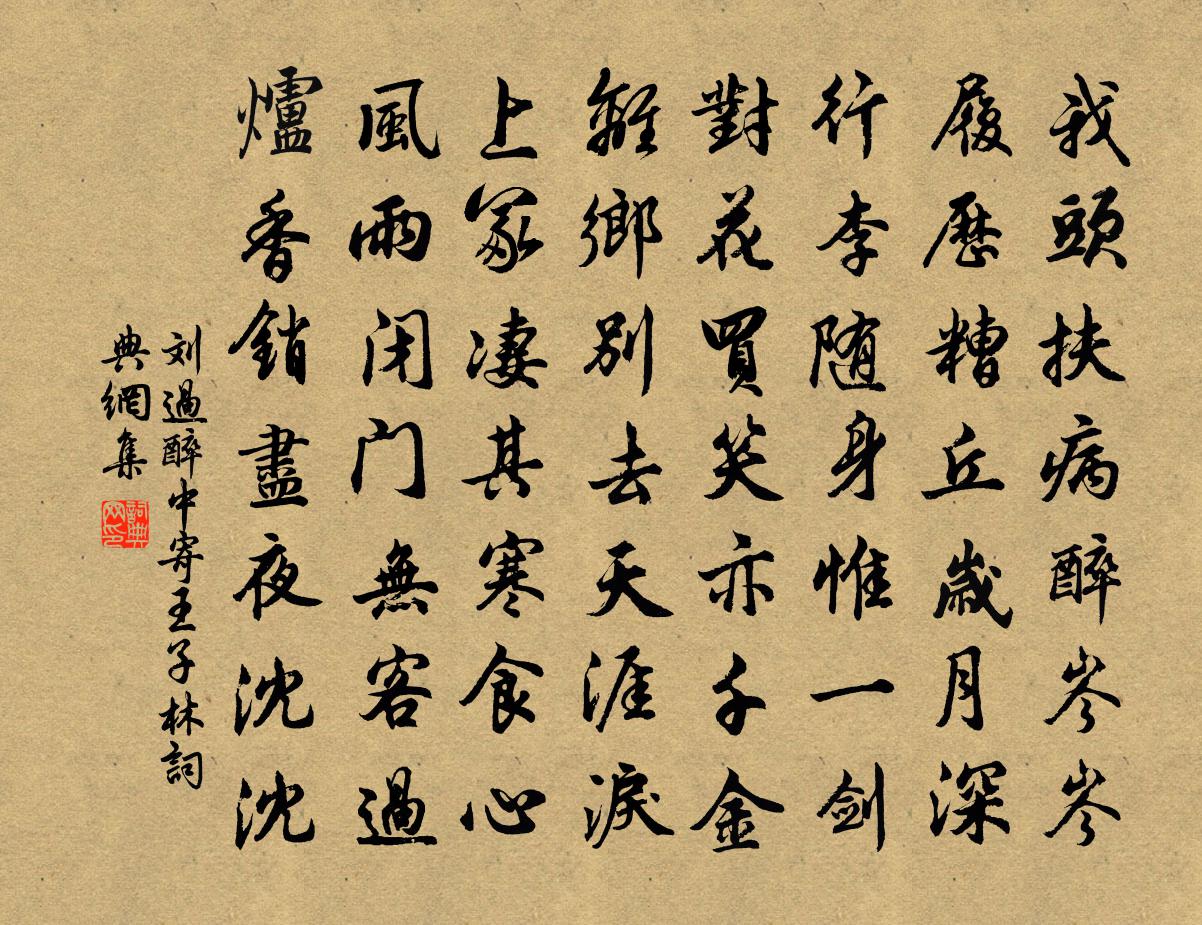 我頭扶病醉岑岑
履歷糟丘歲月深
行李随身惟一剑
對花買笑亦千金
離鄉別去天涯淚
上冢凄其寒食心
風雨闭门無客過
爐香銷盡夜沈沈
刘過醉中寄王子林詞
典網集
詞典网印